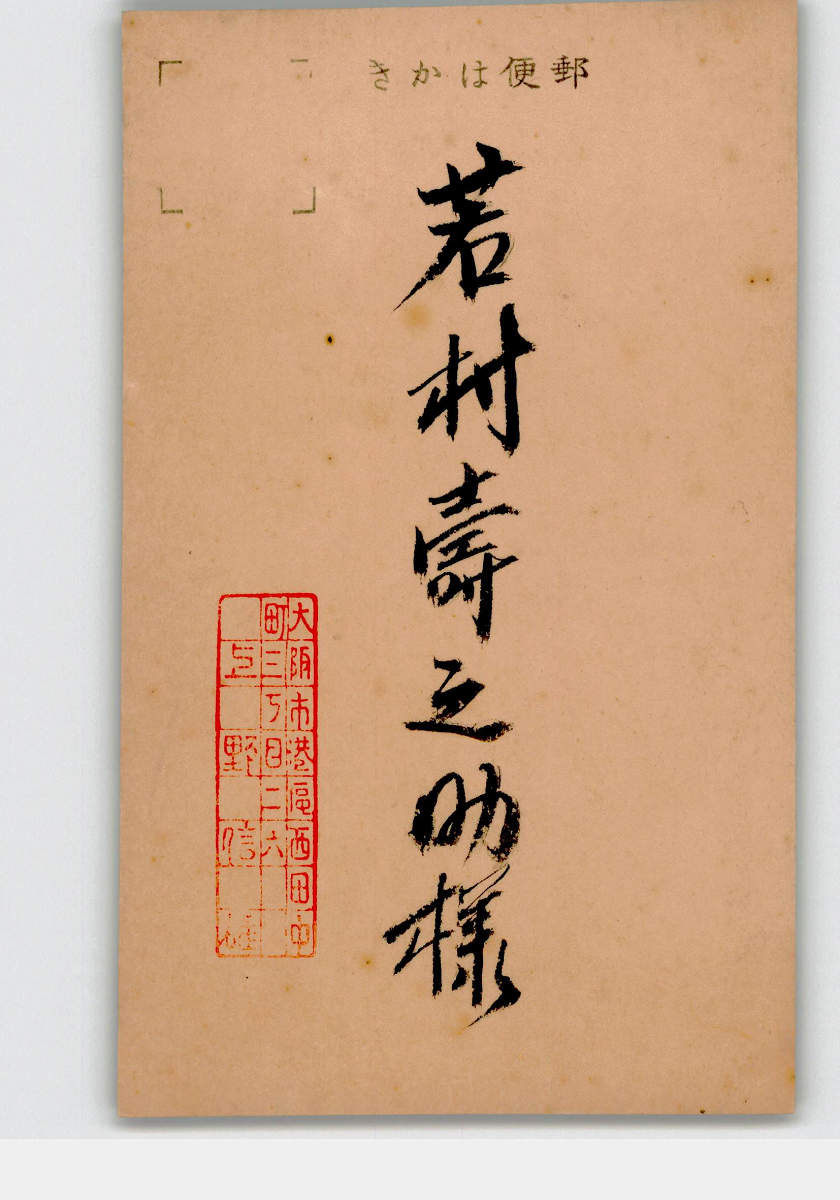 郵便はかき
若村壽之助様
大阪市港區西田中
町三丁目二六
上野信